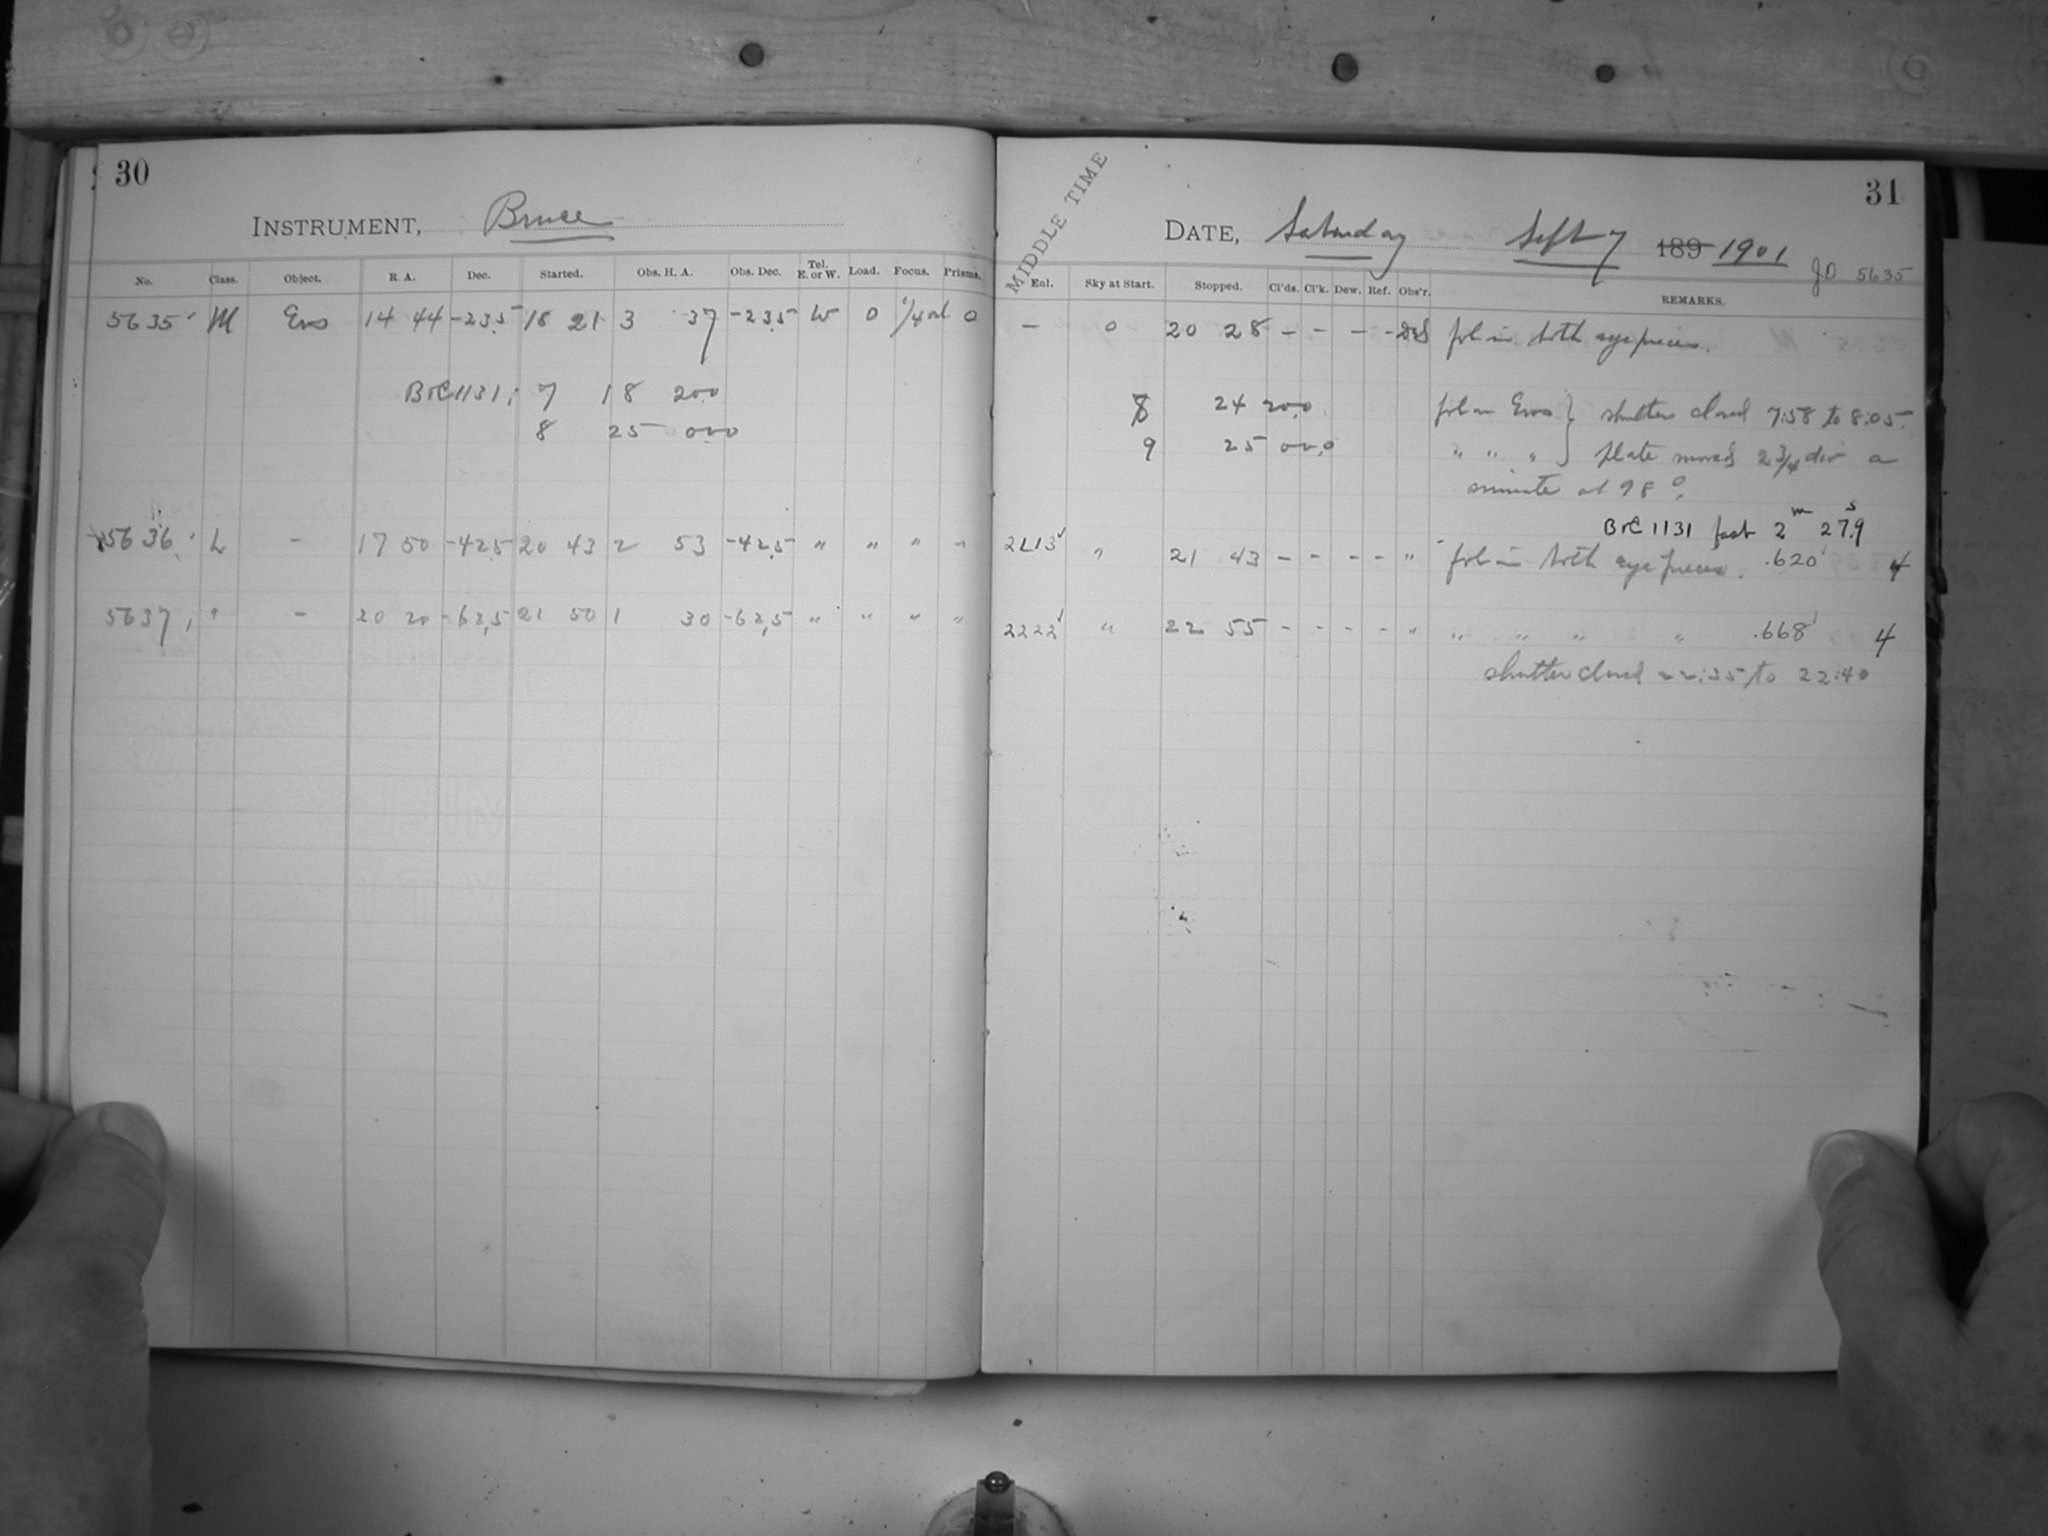 30
INSTRUMENT, Bruce
No. Class. Object. R. A. Dec. Started. Obs. H. A. Obs. Dec. Tel. E. or W. Load. Focus. Prisms.
5635 M Eros 14 44 -23.5 18 21 3 37 -23.5 W 0 1/4 out 0
B&C 1131, 7 18 20.0
8 25 00.0
5636 L - 17 50 -42.5 20 43 2 53 -42.5 " " " "
5637 " - 20 20 -62.5 21 50 1 30 -62.5 " " " "
31
MIDDLE TIME
DATE, Saturday Sept 7 189 1901
JD 5635
Enl. Sky at Start. Stopped. Cl'ds. Cl'k. Dew. Ref. Obs'r. REMARKS.
- 0 20 28 - - - - fol in both eyepieces.
8 24 20.0 fol on Eros } shutter closed 7:58 to 8:05
9 25 00.0 " " " } plate moved 2 3/4 div a
minute at 98°.
B&C 1131 fast 2m 27.9s
2113 " 21 43 - - - - " fol in both eyepieces. .620 4
2222 " 22 55 - - - - " " " " " .668 4
shutter closed 22:35 to 22:40